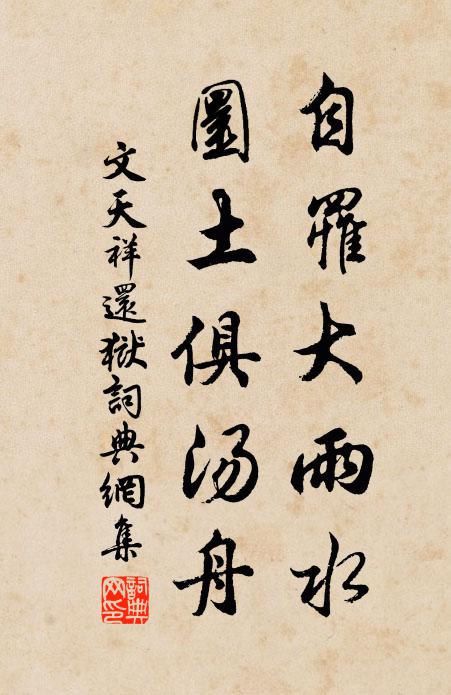 自罹大雨水
圜土俱汤舟
文天祥還獄詞典網集
詞典
网印